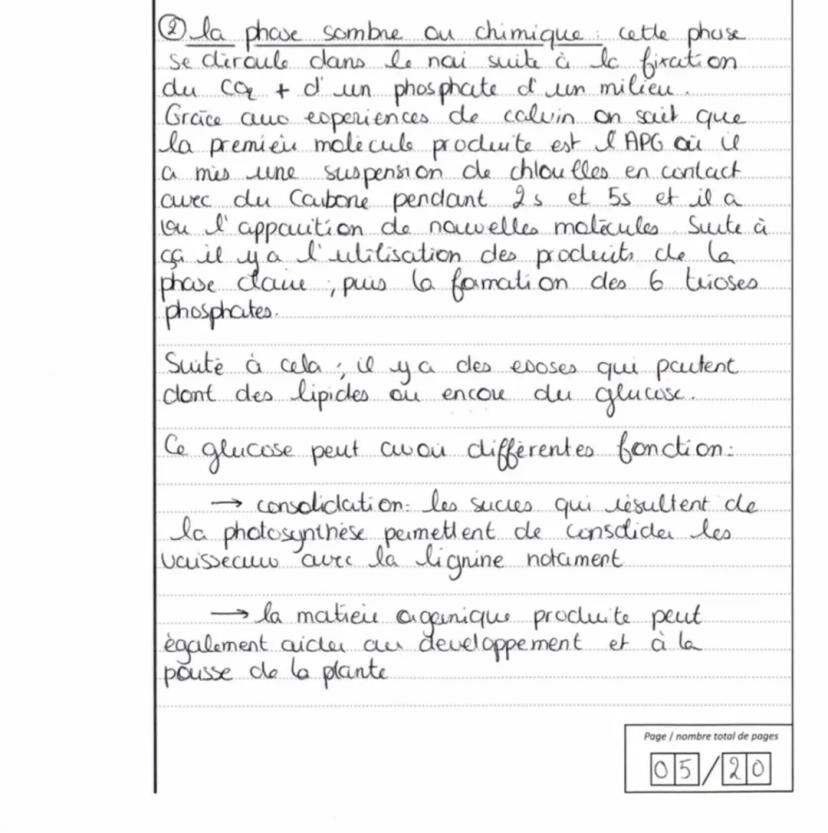 ② la phase sombre ou chimique : cette phase
se déroule dans le noir suite à la fixation
du CO2 + d'un phosphate d'un milieu.
Grâce aux expériences de calvin on sait que
la première molécule produite est l'APG où il
a mis une suspension de chlorelles en contact
avec du Carbone pendant 2s et 5s et il a
vu l'apparition de nouvelles molécules. Suite à
ça il y a l'utilisation des produits de la
phase claire, puis la formation des 6 trioses
phosphates.
Suite à cela, il y a des exoses qui partent
dont des lipides ou encore du glucose.
Ce glucose peut avoir différentes fonction :
→ consolidation : les sucres qui résultent de
la photosynthèse permettent de consolider les
vaisseaux avec la lignine notament
→ la matière organique produite peut
également aider au developpement et à la
pousse de la plante
Page / nombre total de pages
05/20